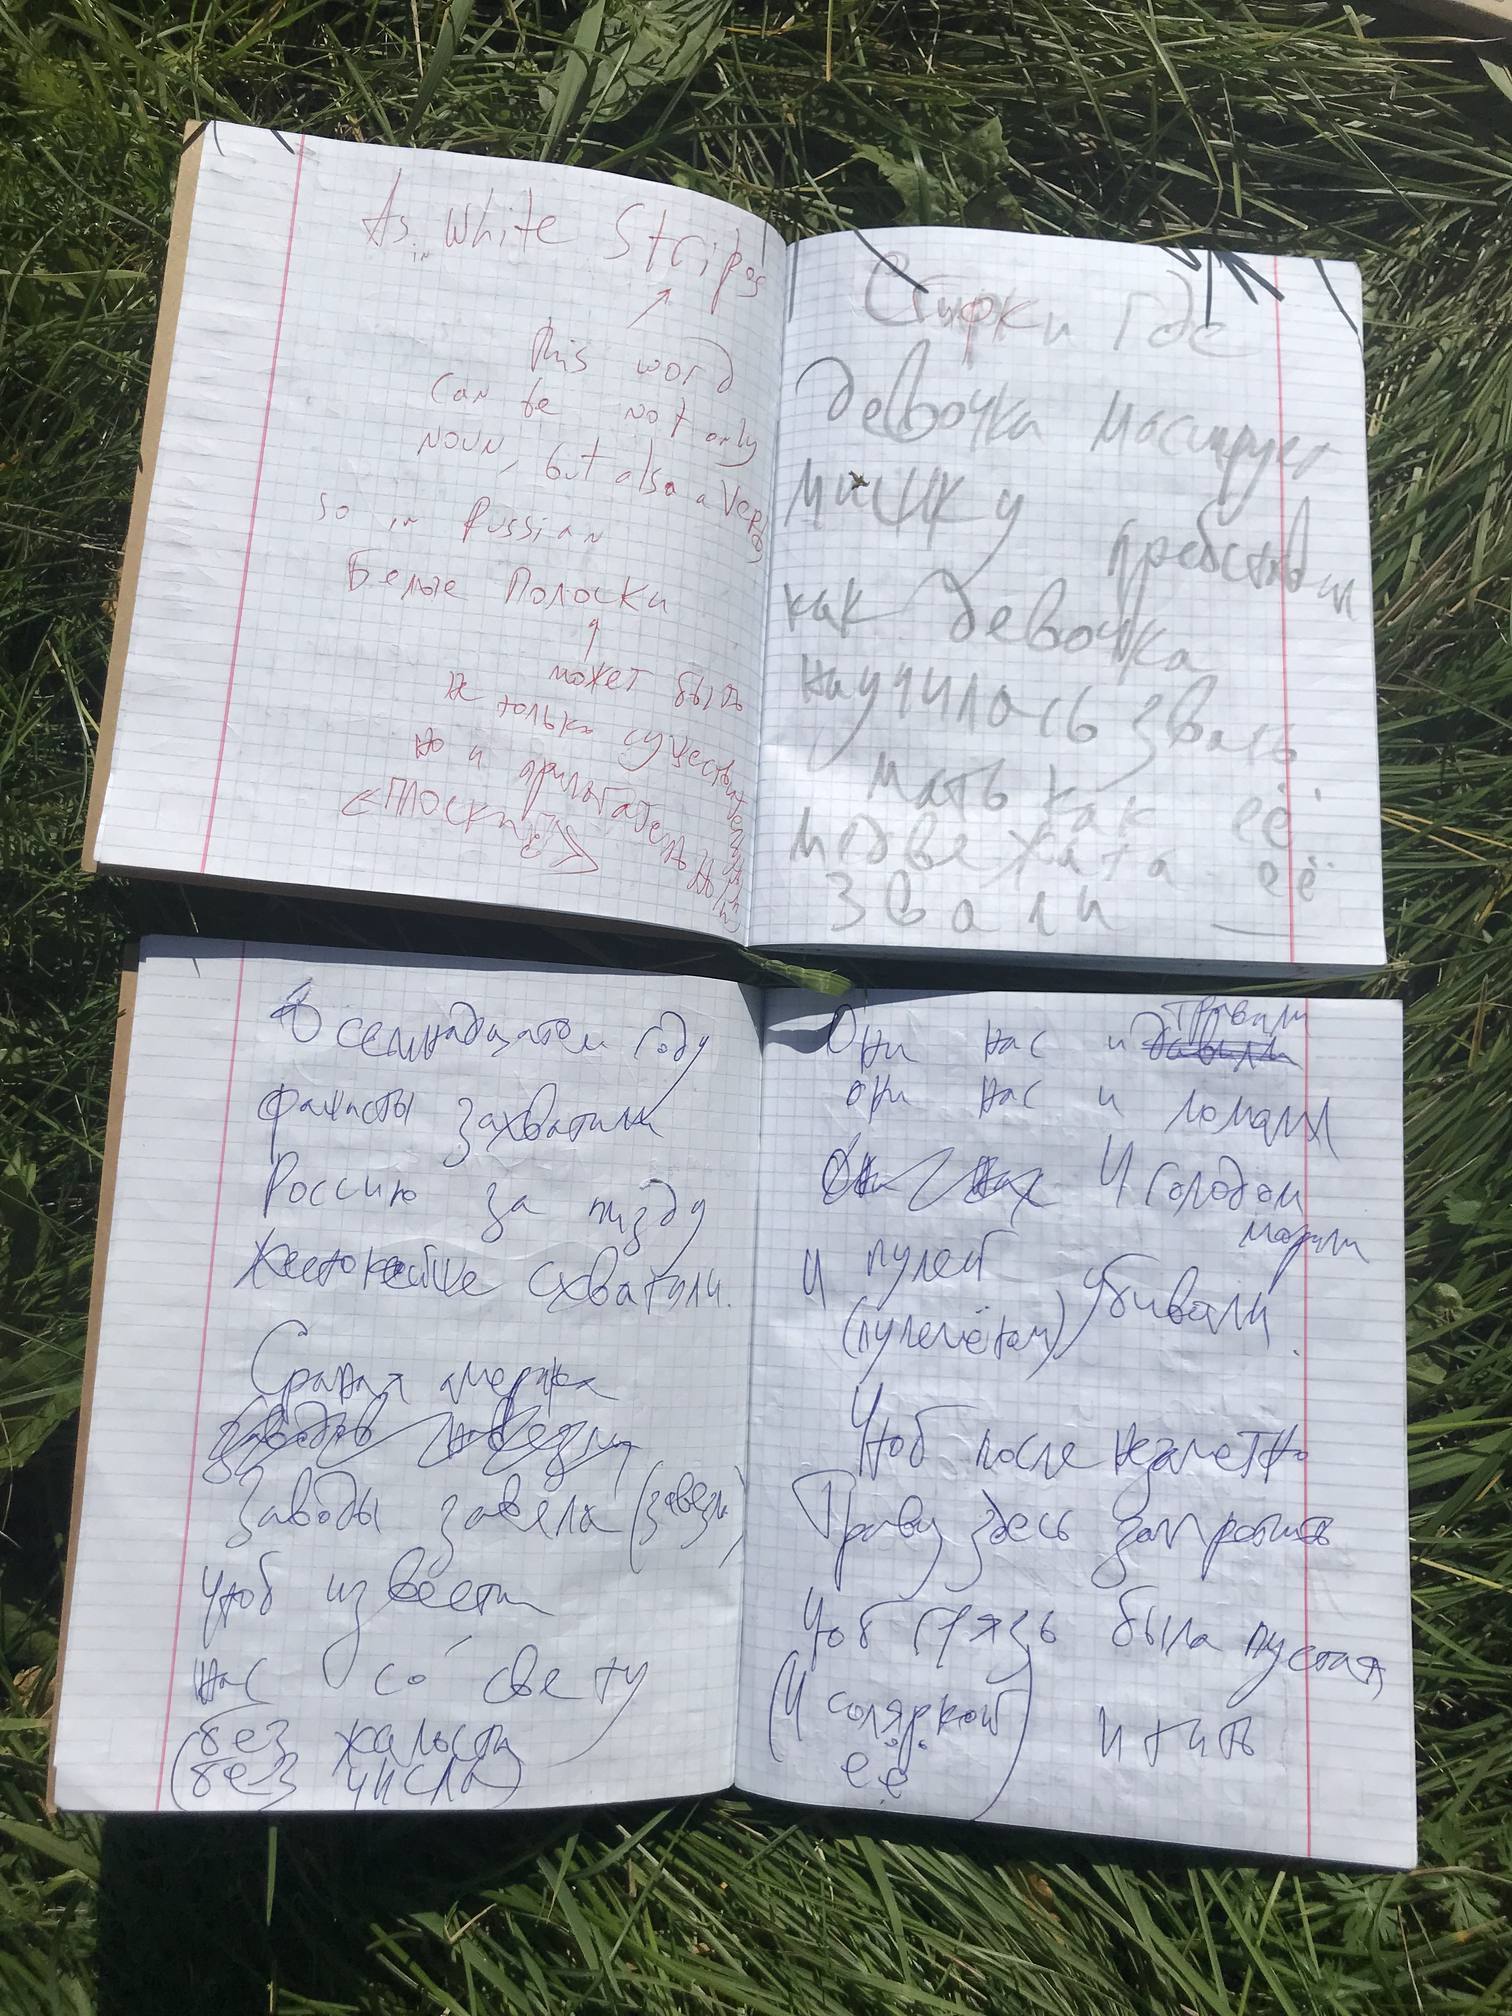 As in White Stripes
this word
can be not only
noun, but also a verb
so in Russian
Белые Полоски
может быть
не только существительным
но и прилагательным
«Плоски»
Стирки где
девочка масирует
мишку
как девочка
научилась звать
мать как её
медвежата её
звали
В семнадцатом году
фашисты захватили
Россию за пизду
жесточейше схватили.
Сраная америка
Заводы завела (завезла)
Чтоб извести
нас со свету
без жалости
(без числа)
Они нас и травили
они нас и ломали
И голодом
морили
И пулей убивали.
(пулемётом)
Чтоб после незаметно
Траву здесь запретить
Чтоб грязь была пустая
(И соляркой и пить
её)